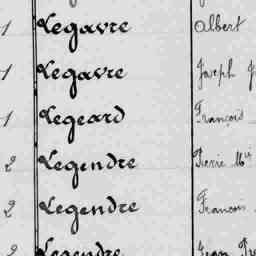 1 Legavre Albert
1 Legavre Joseph
1 Legeard François
2 Legendre Pierre Mie
2 Legendre François
2 Legendre Jean